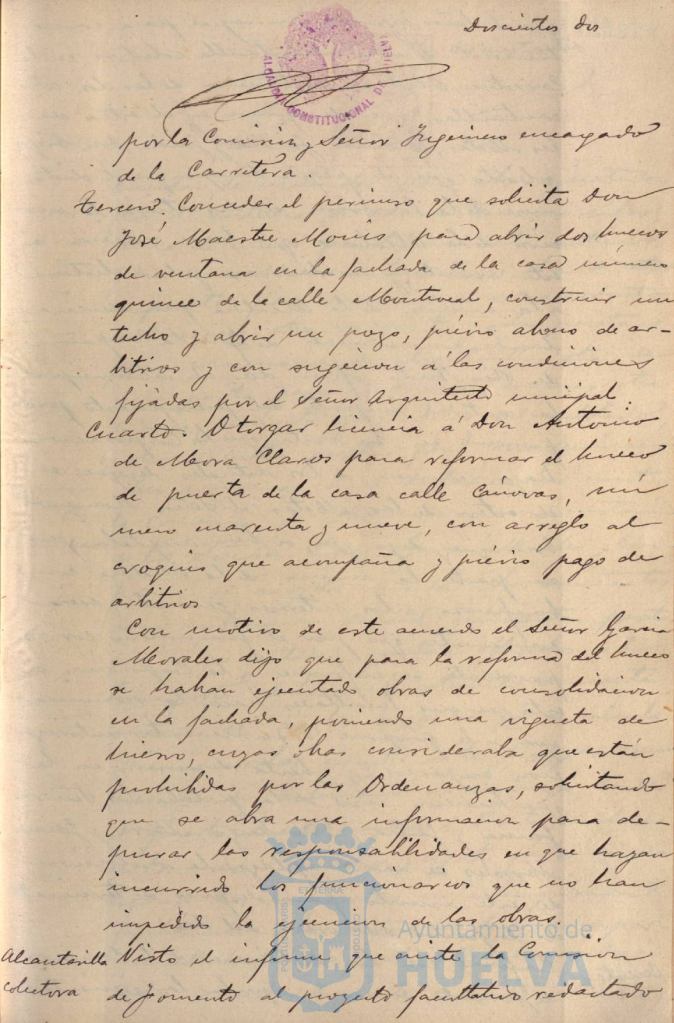 Doscientos dos
ALCALDIA CONSTITUCIONAL DE HUELVA
por la Comision y Señor Ingeniero encargado
de la Carretera.
Tercero. Conceder el permiso que solicita Don
José Maestre Monís para abrir dos huecos
de ventana en la fachada de la casa número
quince de la calle Montrocal, construir un
techo y abrir un pozo, prévio abono de ar-
bitrios y con sugecion á las condiciones
fijadas por el Señor Arquitecto municipal.
Cuarto. Otorgar licencia á Don Antonio
de Mora Claros para reformar el hueco
de puerta de la casa calle Cánovas, nú
mero cuarenta y nueve, con arreglo al
croquis que acompaña y prévio pago de
arbitrios
Con motivo de este acuerdo el Señor Garcia
Morales dijo que para la reforma del hueco
se habian ejecutado obras de consolidacion
en la fachada, poniendo una vigueta de
hierro, cuyas obras consideraba que están
prohibidas por las Ordenanzas, solicitando
que se abra una informacion para de-
purar las responsabilidades en que hayan
incurrido los funcionarios que no han
impedido la ejecucion de las obras.
Alcantarilla colectora
Visto el informe que emite la Comision
de Fomento al proyecto facultativo redactado
Ayuntamiento de
HUELVA